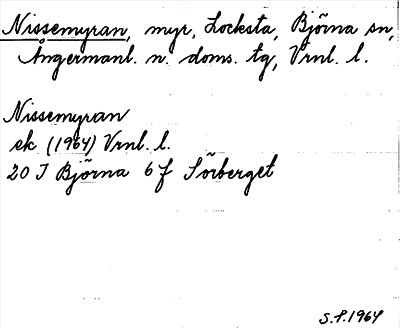 Nissemyran, myr, Locksta, Björna sn,
Ångermanl. n. doms. tg, Vrnl. l.
Nissemyran
ek (1964) Vrnl. l.
20 J Björna 6 f Sörberget
S.P. 1964